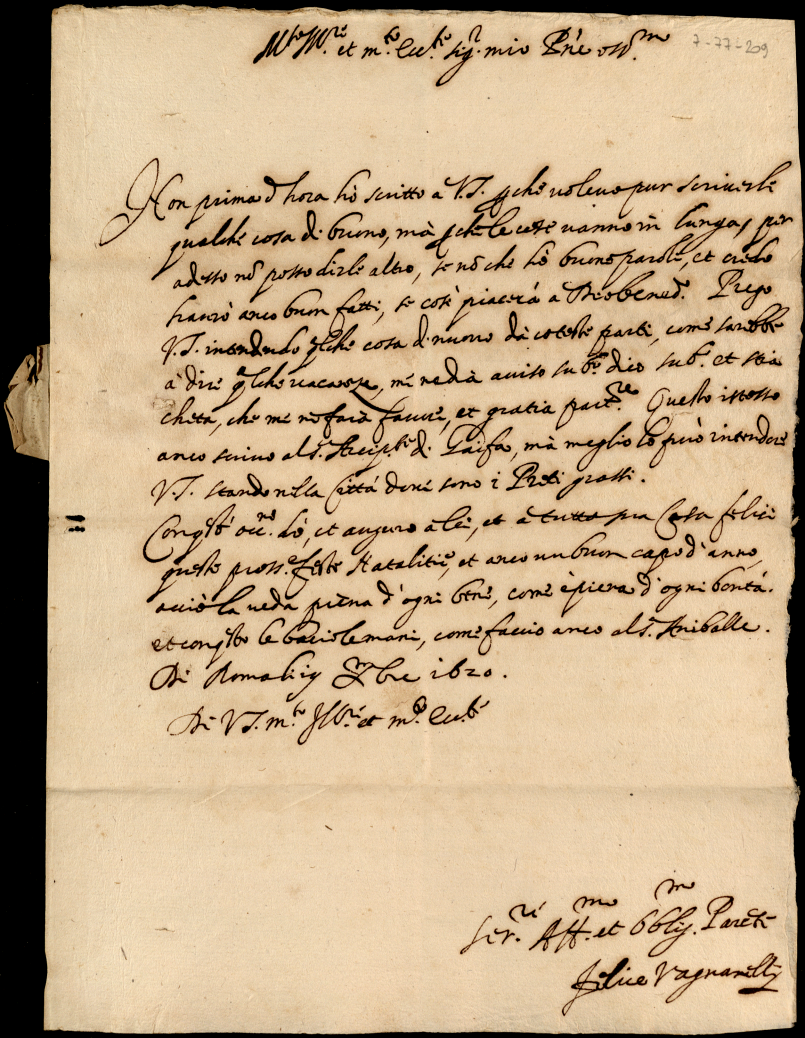 7-77-209
M.to Ill.re et m.to Ecc.te Sig.r mio P.ne oss.mo
Non prima d'hora hò scritto a V.S. p̱che uoleuo pur scriuerle
qualche cosa di buono, mà p̱che le cose uanno in lunga, per
adesso nõ posso dirle altro, se nõ che hò buone parole, et credo
haurò anco buon fatti, se così piacerà a Dio bened.o Prego
V.S. intendendo q̃lche cosa di nuouo dà coteste parti, come sarebbe
à dire q̃lche uacanza, me ne dia auiso sub.o dico sub.o et stia
cheta, che me ne farà fauore, et gratia part.re Questo istesso
anco scriuo al S. di Gaifa, mà meglio lo può intendere
V.S. stando nella Città doue sono i Preti grassi.
Con q̃sto occ.ne dò, et auguro a lei, et à tutta sua Casa felici
queste pross.e feste Natalitie, et anco un buon capo d'anno,
acciò la ueda piena d'ogni bene, come è piena d'ogni bontà.
et con q̃sto le bacio le mani, come faccio anco al S. Aniballe.
Di Roma li Xbre 1620.
Di V.S. m.to Ill.re et m.to Ecc.te
Ser.re Aff.mo et Obblig.mo Parẽte
Felice Vagnarelli